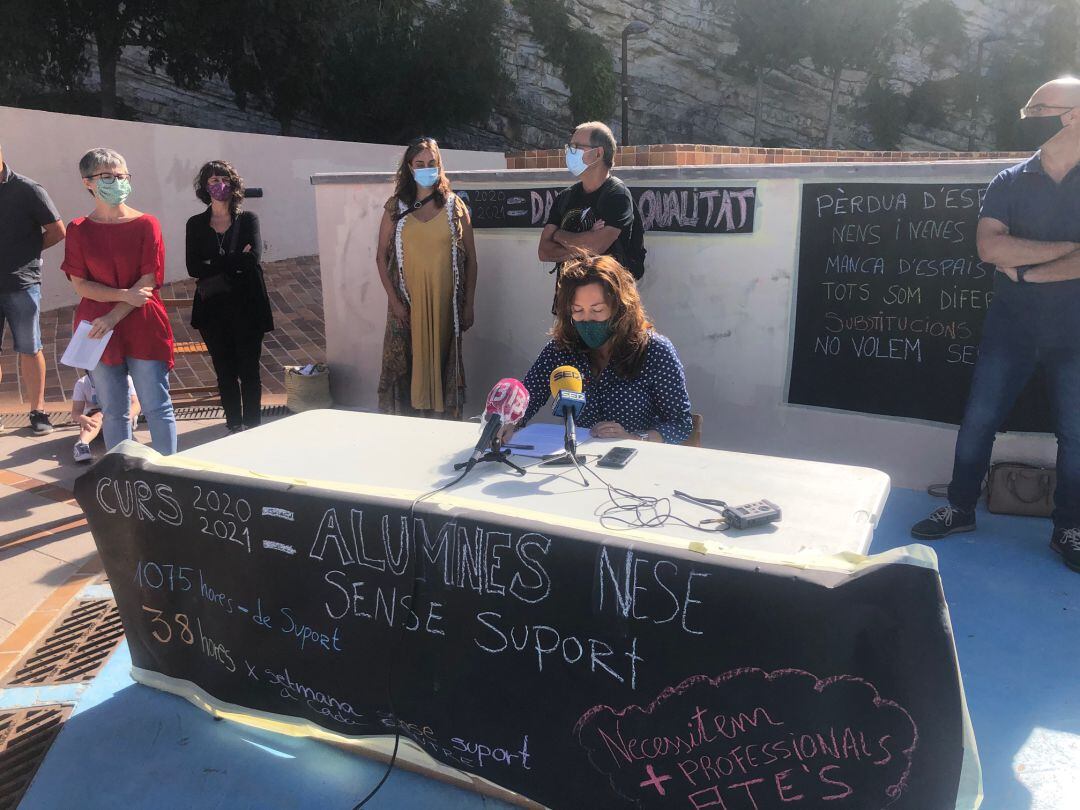 2020
2021 = DA QUALITAT
PÈRDUA D'ES
NENS I NENES
MANCA D'ESPAIS
TOTS SOM DIFER
SUBSTITUCIONS
NO VOLEM SE
SER
SER
CURS 2020
2021 = ALUMNES NESE
SENSE SUPORT
1075 hores de Suport
38 hores x setmana
cada
suport
Necessitem
+ PROFESSIONALS
ATE'S